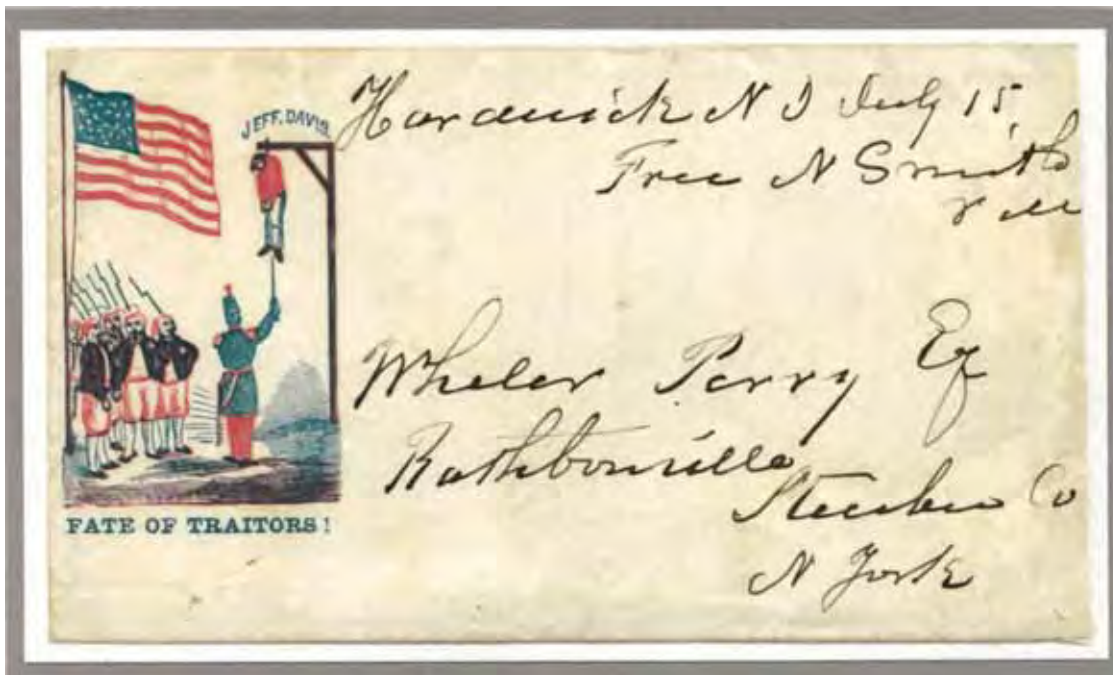 JEFF. DAVIS.
FATE OF TRAITORS!
Hardwick N J July 15
Free N Smith
P M
Wheler Perry Esq
Rathboneville
Steuben Co
N York